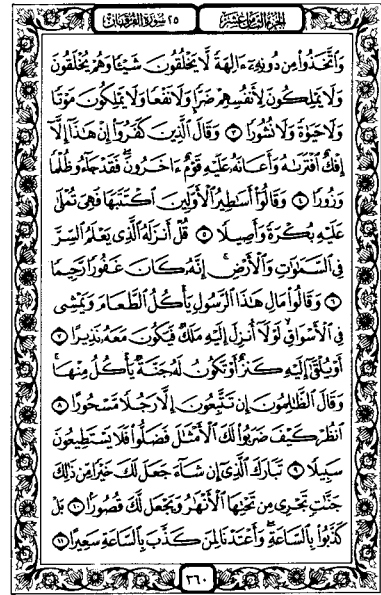 الجزء الثامن عشر ٢٥ سورة الفرقان
وَاتَّخَذُوا مِن دُونِهِ ءَالِهَةً لَّا يَخْلُقُونَ شَيْئًا وَهُمْ يُخْلَقُونَ
وَلَا يَمْلِكُونَ لِأَنفُسِهِمْ ضَرًّا وَلَا نَفْعًا وَلَا يَمْلِكُونَ مَوْتًا
وَلَا حَيَوٰةً وَلَا نُشُورًا ٣ وَقَالَ الَّذِينَ كَفَرُوا إِنْ هَٰذَا إِلَّا
إِفْكٌ افْتَرَىٰهُ وَأَعَانَهُ عَلَيْهِ قَوْمٌ ءَاخَرُونَ ۖ فَقَدْ جَاءُو ظُلْمًا
وَزُورًا ٤ وَقَالُوا أَسَٰطِيرُ الْأَوَّلِينَ اكْتَتَبَهَا فَهِيَ تُمْلَىٰ
عَلَيْهِ بُكْرَةً وَأَصِيلًا ٥ قُلْ أَنزَلَهُ الَّذِي يَعْلَمُ السِّرَّ
فِي السَّمَٰوَٰتِ وَالْأَرْضِ ۚ إِنَّهُ كَانَ غَفُورًا رَّحِيمًا
٦ وَقَالُوا مَالِ هَٰذَا الرَّسُولِ يَأْكُلُ الطَّعَامَ وَيَمْشِي
فِي الْأَسْوَاقِ ۙ لَوْلَا أُنزِلَ إِلَيْهِ مَلَكٌ فَيَكُونَ مَعَهُ نَذِيرًا ٧
أَوْ يُلْقَىٰ إِلَيْهِ كَنزٌ أَوْ تَكُونُ لَهُ جَنَّةٌ يَأْكُلُ مِنْهَا ۚ
وَقَالَ الظَّٰلِمُونَ إِن تَتَّبِعُونَ إِلَّا رَجُلًا مَّسْحُورًا ٨
انظُرْ كَيْفَ ضَرَبُوا لَكَ الْأَمْثَٰلَ فَضَلُّوا فَلَا يَسْتَطِيعُونَ
سَبِيلًا ٩ تَبَارَكَ الَّذِي إِن شَاءَ جَعَلَ لَكَ خَيْرًا مِّن ذَٰلِكَ
جَنَّٰتٍ تَجْرِي مِن تَحْتِهَا الْأَنْهَٰرُ وَيَجْعَل لَّكَ قُصُورًا ١٠ بَلْ
كَذَّبُوا بِالسَّاعَةِ ۖ وَأَعْتَدْنَا لِمَن كَذَّبَ بِالسَّاعَةِ سَعِيرًا ١١
٣٦٠